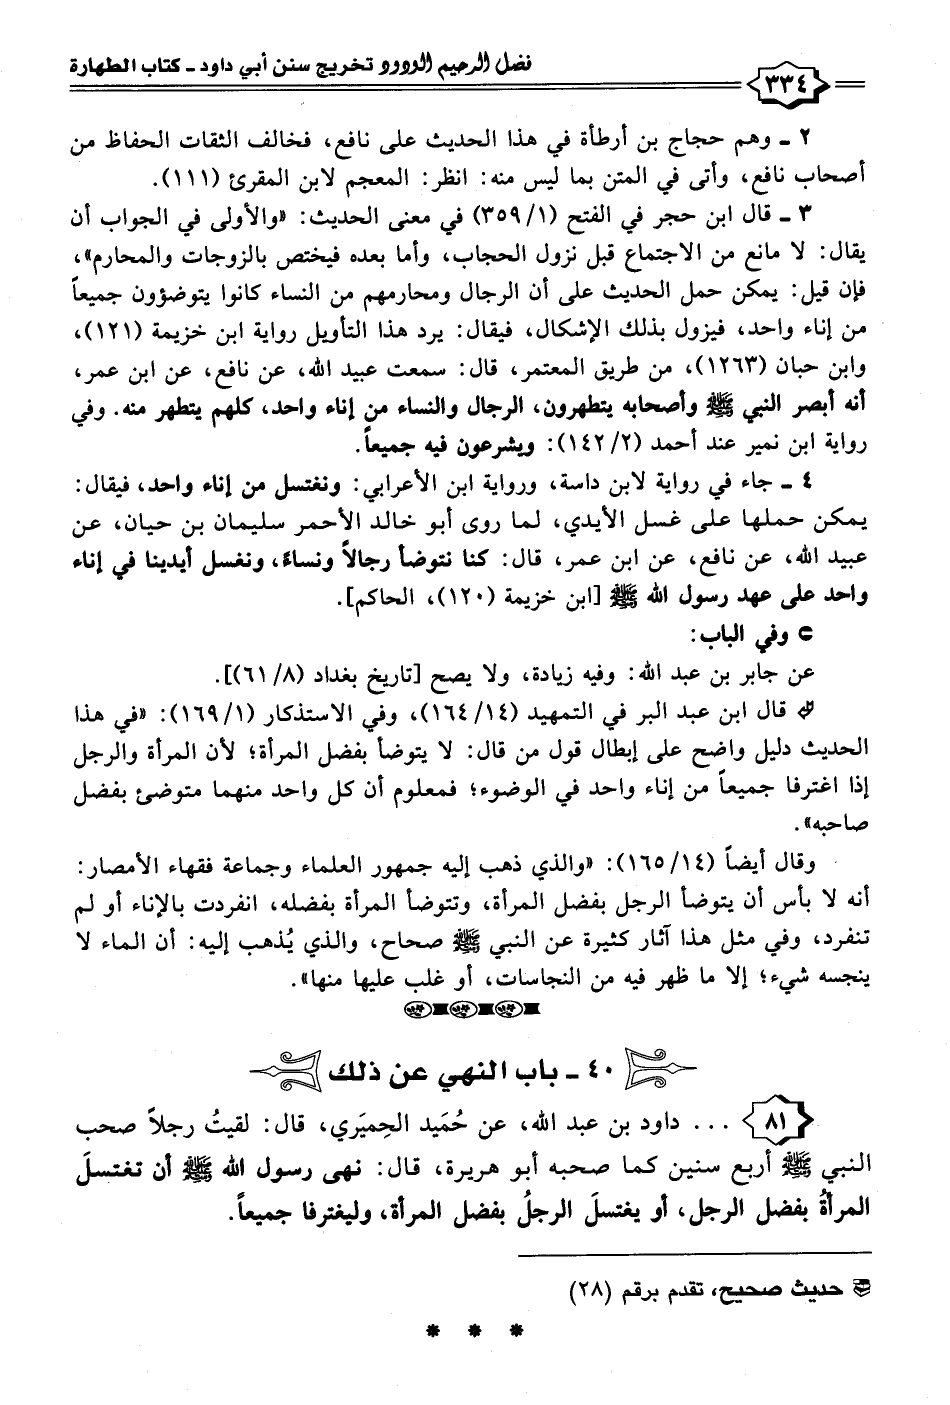 فضل الرحيم الودود تخريج سنن أبي داود - كتاب الطهارة
٣٣٤
٢ - وهم حجاج بن أرطأة في هذا الحديث على نافع، فخالف الثقات الحفاظ من
أصحاب نافع، وأتى في المتن بما ليس منه: انظر: المعجم لابن المقرئ (١١١).
٣ - قال ابن حجر في الفتح (١/ ٣٥٩) في معنى الحديث: «والأولى في الجواب أن
يقال: لا مانع من الاجتماع قبل نزول الحجاب، وأما بعده فيختص بالزوجات والمحارم»،
فإن قيل: يمكن حمل الحديث على أن الرجال ومحارمهم من النساء كانوا يتوضؤون جميعاً
من إناء واحد، فيزول بذلك الإشكال، فيقال: يرد هذا التأويل رواية ابن خزيمة (١٢١)،
وابن حبان (١٢٦٣)، من طريق المعتمر، قال: سمعت عبيد الله، عن نافع، عن ابن عمر،
أنه أبصر النبي ﷺ وأصحابه يتطهرون، الرجال والنساء من إناء واحد، كلهم يتطهر منه. وفي
رواية ابن نمير عند أحمد (٢/ ١٤٢): ويشرعون فيه جميعاً.
٤ - جاء في رواية لابن داسة، ورواية ابن الأعرابي: ونغتسل من إناء واحد، فيقال:
يمكن حملها على غسل الأيدي، لما روى أبو خالد الأحمر سليمان بن حيان، عن
عبيد الله، عن نافع، عن ابن عمر، قال: كنا نتوضأ رجالاً ونساءً، ونغسل أيدينا في إناء
واحد على عهد رسول الله ﷺ [ابن خزيمة (١٢٠)، الحاكم].
وفي الباب:
عن جابر بن عبد الله: وفيه زيادة، ولا يصح [تاريخ بغداد (٨/ ٦١)].
قال ابن عبد البر في التمهيد (١٤/ ١٦٤)، وفي الاستذكار (١/ ١٦٩): «في هذا
الحديث دليل واضح على إبطال قول من قال: لا يتوضأ بفضل المرأة؛ لأن المرأة والرجل
إذا اغترفا جميعاً من إناء واحد في الوضوء؛ فمعلوم أن كل واحد منهما متوضئ بفضل
صاحبه».
وقال أيضاً (١٤/ ١٦٥): «والذي ذهب إليه جمهور العلماء وجماعة فقهاء الأمصار:
أنه لا بأس أن يتوضأ الرجل بفضل المرأة، وتتوضأ المرأة بفضله، انفردت بالإناء أو لم
تنفرد، وفي مثل هذا آثار كثيرة عن النبي ﷺ صحاح، والذي يُذهب إليه: أن الماء لا
ينجسه شيء؛ إلا ما ظهر فيه من النجاسات، أو غلب عليها منها».
٤٠ - باب النهي عن ذلك
٨١ ... داود بن عبد الله، عن حُمَيد الحِميَري، قال: لقيتُ رجلاً صحب
النبي ﷺ أربع سنين كما صحبه أبو هريرة، قال: نهى رسول الله ﷺ أن تغتسلَ
المرأةُ بفضل الرجل، أو يغتسلَ الرجلُ بفضل المرأة، وليغترفا جميعاً.
حديث صحيح، تقدم برقم (٢٨)
* * *